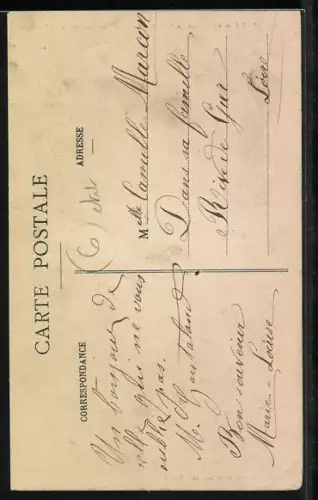 CARTE POSTALE
CORRESPONDANCE
ADRESSE
Un bonjour de
celle qui ne vous
oublie pas.
M.
Bon souvenir
Marie-Louise
Melle Camille Marcon
Dans sa famille
Rive de Gier
Loire
(6)